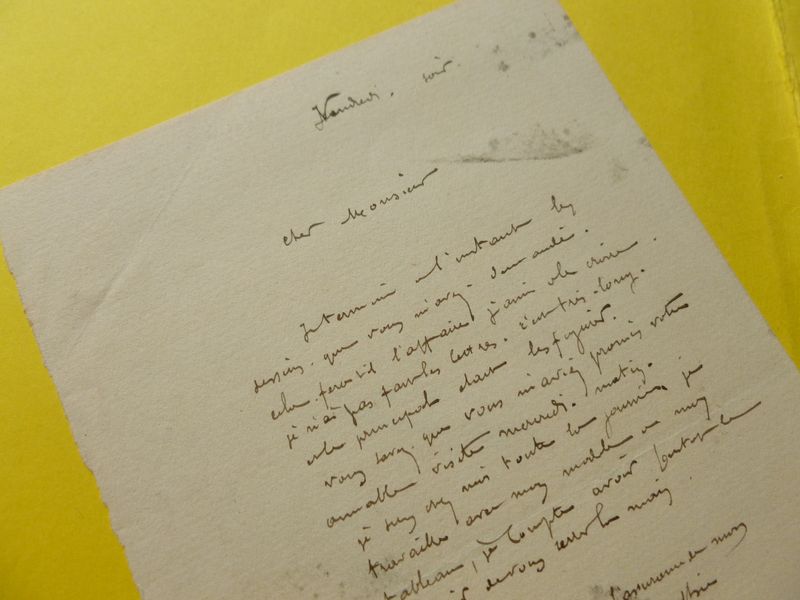 Vendredi. soir.
cher Monsieur
Je termine à l'instant les
dessins. que vous m'avez. demandé.
cela. fera t'il l'affaire, j'aime à le croire.
je n'ai pas fait les lettres. c'est très-long.
le principal étant les figures.
vous savez. que vous m'aviez promis votre
aimable visite mercredi. matin.
je suis chez moi toute la journée, je
travaille avec mon modèle a mon
tableau, je compte avoir bientôt le
de vous serrer la main.
l'assurance de mon